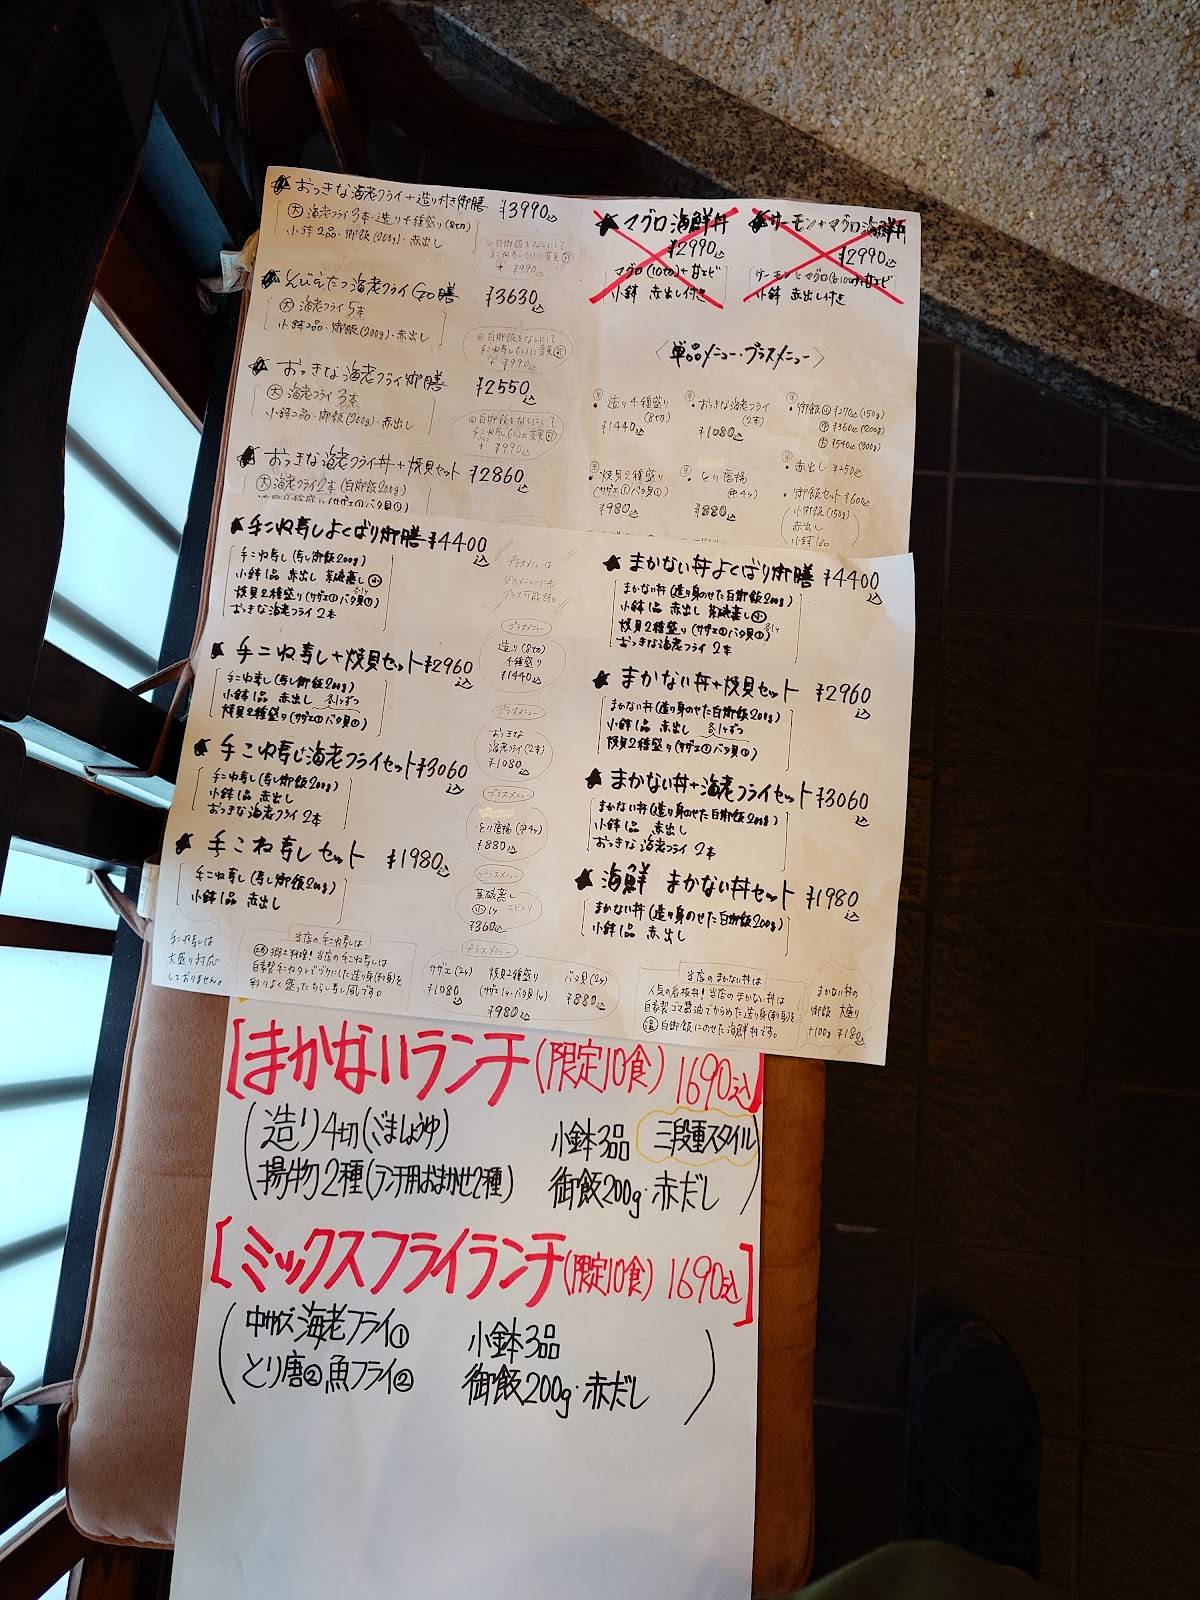 おっきな海老フライ+造り付き御膳 ¥3990込
大 海老フライ3本・造り4種盛り(8切)
小鉢2品・御飯(200g)・赤出し
白御飯をなしにして
+¥990込
海老フライ御膳 ¥3630込
大 海老フライ5本
小鉢2品・御飯(200g)・赤出し
白御飯をなしにして
+¥990込
おっきな海老フライ御膳 ¥2550込
大 海老フライ3本
小鉢2品・御飯(200g)・赤出し
白御飯をなしにして
+¥990込
おっきな海老フライ丼+焼貝セット ¥2860込
大 海老フライ2本(白御飯200g)
マグロ海鮮丼
¥2990込
マグロ(10切)+甘エビ
小鉢 赤出し付き
サーモン+マグロ海鮮丼
¥2990込
サーモンとマグロ(各10切)+甘エビ
小鉢 赤出し付き
〈単品メニュー・プラスメニュー〉
造り4種盛り
(8切)
¥1440込
おっきな海老フライ
(2本)
¥1080込
御飯 小 ¥270込(150g)
中 ¥360込(200g)
大 ¥540込(300g)
焼貝2種盛り
(サザエ①バタ貝①)
¥980込
とり唐揚
¥880込
赤出し ¥250込
御飯セット ¥600込
小御飯(150g)
赤出し
小鉢1品
手こね寿しよくばり御膳 ¥4400込
手こね寿し(寿し御飯200g)
小鉢1品 赤出し 茶碗蒸し小
焼貝2種盛り(サザエ①バタ貝①)
おっきな海老フライ2本
手こね寿し+焼貝セット ¥2960込
手こね寿し(寿し御飯200g)
小鉢1品 赤出し 各1ヶずつ
焼貝2種盛り(サザエ①バタ貝①)
手こね寿し海老フライセット ¥3060込
手こね寿し(寿し御飯200g)
小鉢1品 赤出し
おっきな海老フライ2本
手こね寿しセット ¥1980込
手こね寿し(寿し御飯200g)
小鉢1品 赤出し
手こね寿しは
大盛り対応
しておりません。
当店の手こね寿しは
郷土料理!当店の手こね寿しは
自家製手こねタレでヅケにした造り身(刺身)を
彩りよく盛ったちらし寿し風です。
プラスメニューは
どのメニューにも
プラス可能です。
プラスメニュー
造り(8切)
4種盛り
¥1440込
プラスメニュー
おっきな
海老フライ(2本)
¥1080込
プラスメニュー
とり唐揚(中4ヶ)
¥880込
プラスメニュー
茶碗蒸し
小 1ヶ エビ入り
¥360込
プラスメニュー
サザエ(2ヶ)
¥1080込
焼貝2種盛り
(サザエ1ヶ・バタ貝1ヶ)
¥980込
バタ貝(2ヶ)
¥880込
まかない丼よくばり御膳 ¥4400込
まかない丼(造り身のせた白御飯200g)
小鉢1品 赤出し 茶碗蒸し小
焼貝2種盛り(サザエ①バタ貝①)各1ヶ
おっきな海老フライ2本
まかない丼+焼貝セット ¥2960込
まかない丼(造り身のせた白御飯200g)
小鉢1品 赤出し 各1ヶずつ
焼貝2種盛り(サザエ①バタ貝①)
まかない丼+海老フライセット ¥3060込
まかない丼(造り身のせた白御飯200g)
小鉢1品 赤出し
おっきな海老フライ2本
海鮮 まかない丼セット ¥1980込
まかない丼(造り身のせた白御飯200g)
小鉢1品 赤出し
当店のまかない丼は
人気の看板丼!当店のまかない丼は
自家製ゴマ醤油でからめた造り身(刺身)を
温 白御飯にのせた海鮮丼です。
まかない丼の
御飯 大盛り
+100g ¥180込
[まかないランチ(限定10食) 1690込]
(造り4切(ごましょうゆ) 小鉢3品 三段重スタイル
揚物2種(ランチ用おまかせ2種) 御飯200g・赤だし)
[ミックスフライランチ(限定10食) 1690込]
(中サイズ海老フライ① 小鉢3品
とり唐② 魚フライ② 御飯200g・赤だし)